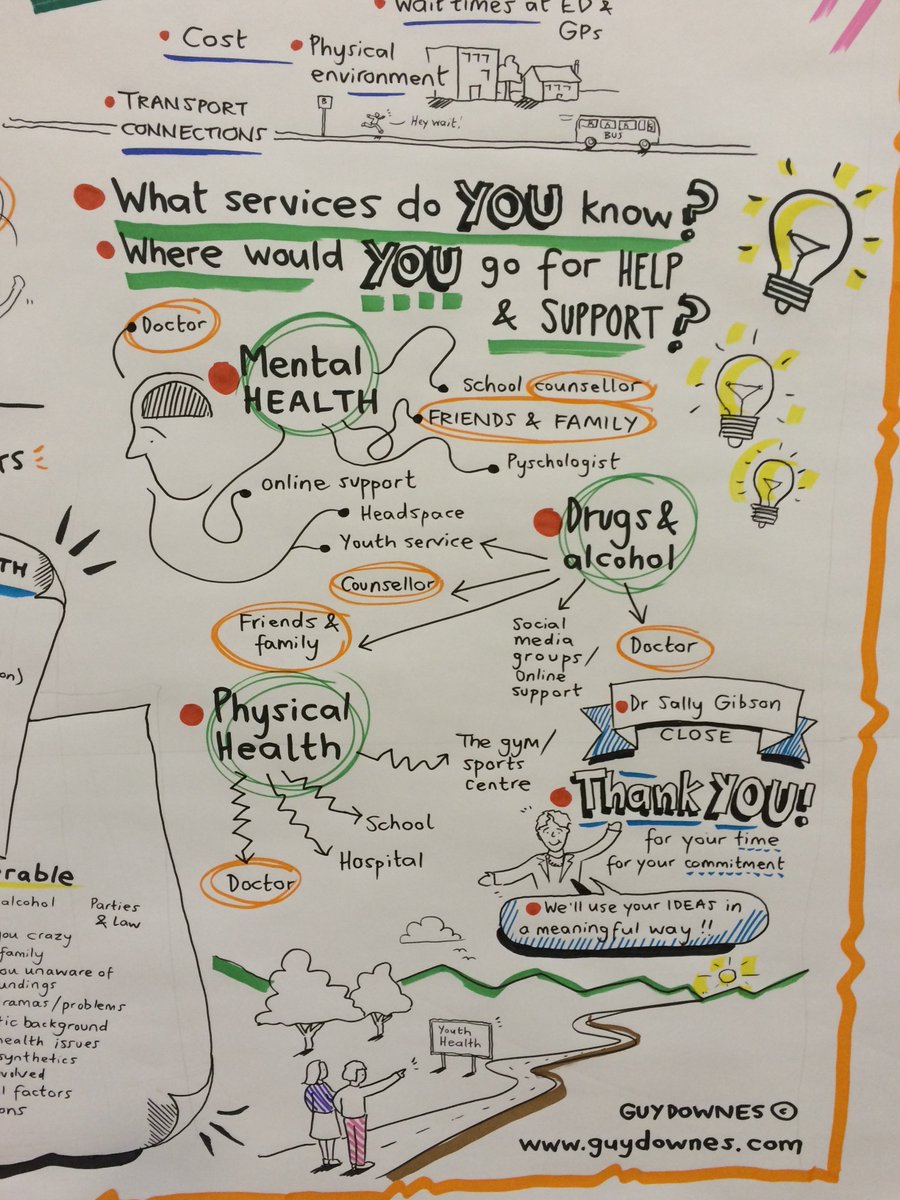 Wait times at ED &
GPs
Cost
Physical
environment
TRANSPORT
CONNECTIONS
Hey wait!
B
BUS
What services do YOU know?
Where would YOU go for HELP
& SUPPORT?
Doctor
Mental
HEALTH
School counsellor
FRIENDS & FAMILY
Pyschologist
online support
Headspace
Youth service
Drugs &
alcohol
Counsellor
Friends &
family
Social
media
groups/
Online
support
Doctor
Physical
Health
The gym/
sports
centre
School
Hospital
Doctor
Dr Sally Gibson
CLOSE
Thank YOU!
for your time
for your commitment
We'll use your IDEAS in
a meaningful way!!
Youth
Health
TS
TH
on)
erable
alcohol
Parties
& Law
ou crazy
family
ou unaware of
undings
ramas/problems
tic background
health issues
synthetics
volved
l factors
ons
GUY DOWNES ©
www.guydownes.com